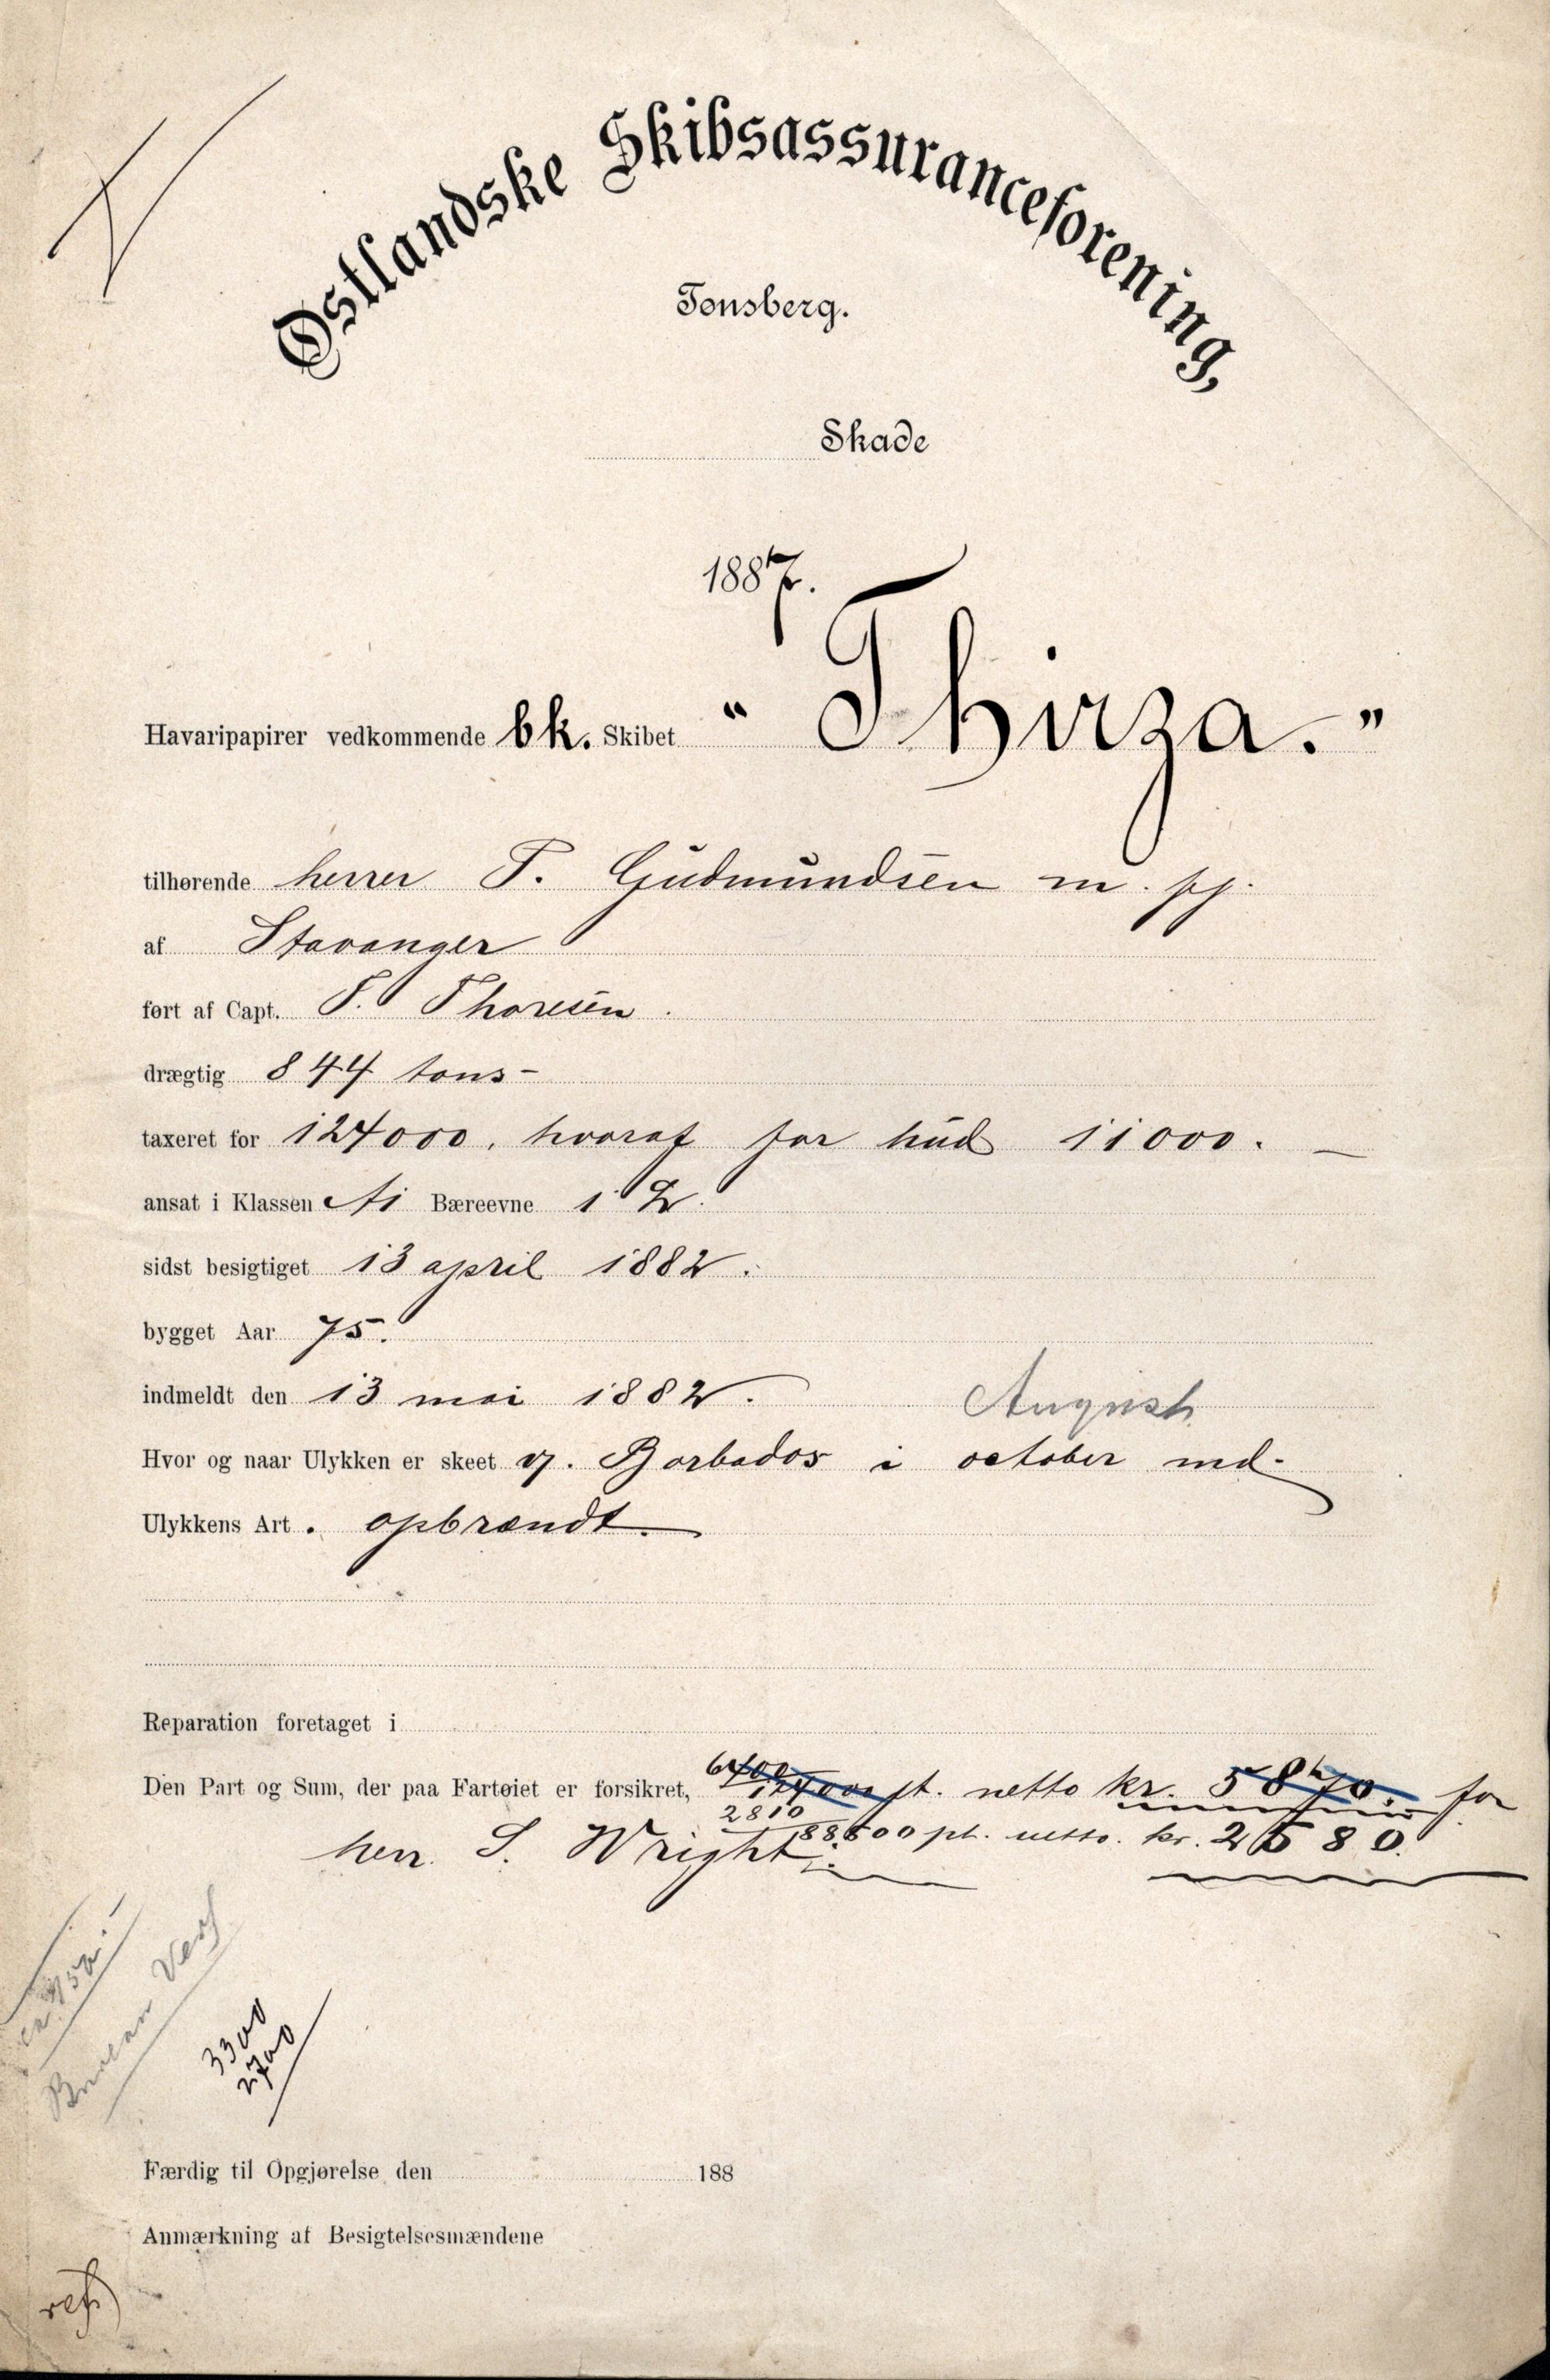 Østlandske Skibsassuranceforening,
Tønsberg.
Skade
1887.
Havaripapirer vedkommende bk. Skibet „ Thirza. ”
tilhørende herrer T. Gudmundsen m. fl.
af Stavanger
ført af Capt. T. Thoresen.
drægtig 844 tons -
taxeret for 124000, hvoraf for hud 11000. —
ansat i Klassen A1 Bæreevne 1 2.
sidst besigtiget 13 april 1882.
bygget Aar 75.
indmeldt den 13 mai 1882.
August
Hvor og naar Ulykken er skeet v. Barbados i october md.
Ulykkens Art . opbrændt.
Reparation foretaget i
Den Part og Sum, der paa Fartøiet er forsikret, 6400/124000 pt. netto kr. 5870. for
2810/88500 pt. netto. kr. 2580.
herr S. Wright.
Bureau Ver
3300
2700
Færdig til Opgjørelse den 188
Anmærkning af Besigtelsesmændene